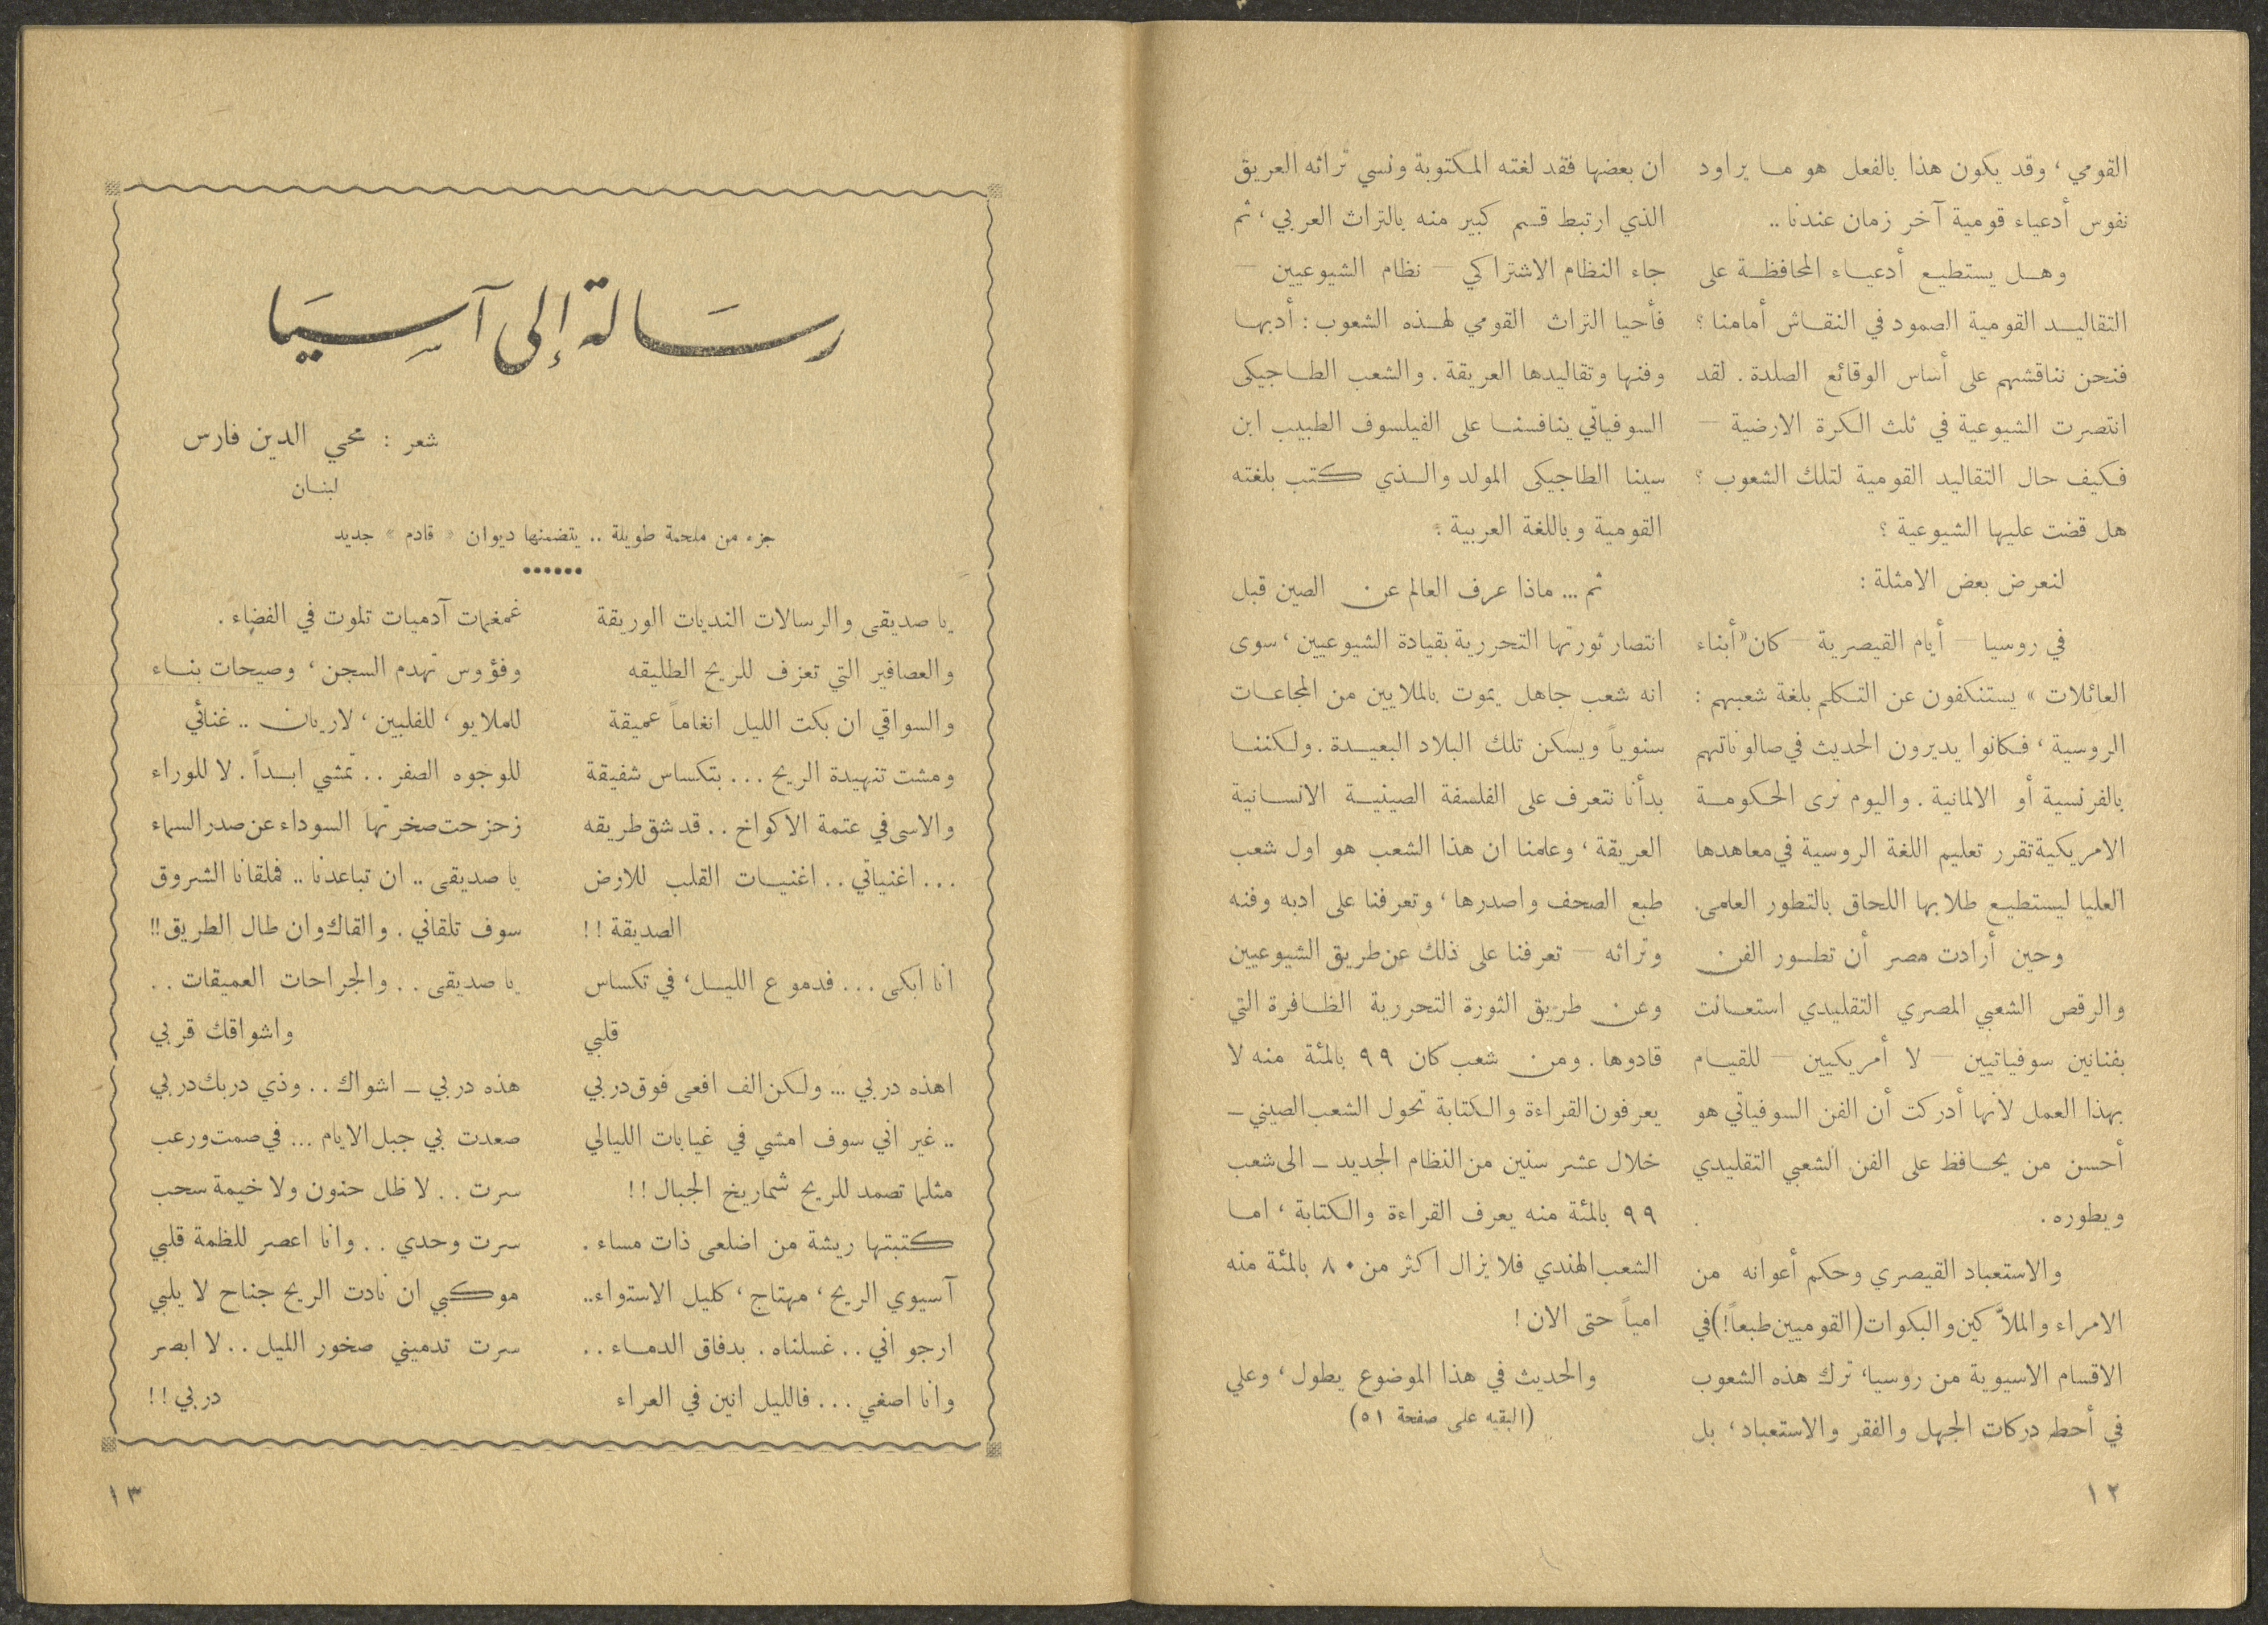 القومي ، وقد يكون هذا بالفعل هو ما يراود
نفوس أدعياء قومية آخر زمان عندنا ..
وهل يستطيع أدعياء المحافظة على
التقاليد القومية الصمود في النقاش أمامنا ؟
فنحن نناقشهم على أساس الوقائع الصلدة . لقد
انتصرت الشيوعية في ثلث الكرة الارضية —
فكيف حال التقاليد القومية لتلك الشعوب ؟
هل قضت عليها الشيوعية ؟
لنعرض بعض الامثلة :
في روسيا — أيام القيصرية — كان « أبناء
العائلات » يستنكفون عن التكلم بلغة شعبهم :
الروسية ، فكانوا يديرون الحديث في صالوناتهم
بالفرنسية أو الالمانية . واليوم نرى الحكومة
الامريكية تقرر تعليم اللغة الروسية في معاهدها
العليا ليستطيع طلابها اللحاق بالتطور العلمي .
وحين أرادت مصر أن تطور الفن
والرقص الشعبي المصري التقليدي استعانت
بفنانين سوفياتيين — لا أمريكيين — للقيام
بهذا العمل لانها أدركت أن الفن السوفياتي هو
أحسن من يحافظ على الفن الشعبي التقليدي
ويطوره .
والاستعباد القيصري وحكم أعوانه من
الامراء والملاّكين والبكوات (القوميين طبعاً!) في
الاقسام الاسيوية من روسيا، ترك هذه الشعوب
في أحط دركات الجهل والفقر والاستعباد ، بل
١٢
ان بعضها فقد لغته المكتوبة ونسي تراثه العريق
الذي ارتبط قسم كبير منه بالتراث العربي ، ثم
جاء النظام الاشتراكي — نظام الشيوعيين —
فأحيا التراث القومي لهذه الشعوب : أدبها
وفنها وتقاليدها العريقة . والشعب الطاجيكي
السوفياتي ينافسنا على الفيلسوف الطبيب ابن
سينا الطاجيكي المولد والذي كتب بلغته
القومية وباللغة العربية .
ثم ... ماذا عرف العالم عن الصين قبل
انتصار ثورتها التحررية بقيادة الشيوعيين ، سوى
انه شعب جاهل يموت بالملايين من المجاعات
سنوياً ويسكن تلك البلاد البعيدة . ولكننا
بدأنا نتعرف على الفلسفة الصينية الانسانية
العريقة ، وعلمنا ان هذا الشعب هو اول شعب
طبع الصحف واصدرها ، وتعرفنا على ادبه وفنه
وتراثه — تعرفنا على ذلك عن طريق الشيوعيين
وعن طريق الثورة التحررية الظافرة التي
قادوها . ومن شعب كان ٩٩ بالمئة منه لا
يعرفون القراءة والكتابة تحول الشعب الصيني —
خلال عشر سنين من النظام الجديد — الى شعب
٩٩ بالمئة منه يعرف القراءة والكتابة ، اما
الشعب الهندي فلا يزال اكثر من ٨٠ بالمئة منه
امياً حتى الان !
والحديث في هذا الموضوع يطول ، وعلي
(البقيه على صفحة ٥١)
رسَالة إلى آسِيَا
شعر : محي الدين فارس
لبنان
جزء من ملحمة طويلة .. يتضمنها ديوان « قادم » جديد
يا صديقي والرسالات النديات الوريقة
والعصافير التي تعزف للريح الطليقه
والسواقي ان بكت الليل انغاماً عميقة
ومشت تنهيدة الريح ... بتكساس شفيقة
والاسى في عتمة الاكواخ .. قد شق طريقه
... اغنياتي .. اغنيات القلب للارض
الصديقة !!
انا ابكي ... فدموع الليل، في تكساس
قلبي
اهذه دربي ... ولكن الف افعى فوق دربي
.. غير اني سوف امشي في غيابات الليالي
مثلما تصمد للريح شماريخ الجبال !!
كتبتها ريشة من اضلعي ذات مساء .
آسيوي الريح ، مهتاج ، كليل الاستواء ..
ارجواني .. غسلناه . بدفاق الدماء ..
وانا اصغي ... فالليل انين في العراء
غمغمات آدميات تلوت في الفضاء .
وفؤوس تهدم السجن ، وصيحات بناء
للملايو ، للفلبين ، لاريان .. غنائي
للوجوه الصفر .. تمشي ابداً . لا للوراء
زحزحت صخرتها السوداء عن صدر السماء
يا صديقي .. ان تباعدنا .. فملقانا الشروق
سوف تلقاني . والقاك وان طال الطريق !!
يا صديقي .. والجراحات العميقات ..
واشواقك قربي
هذه دربي — اشواك .. وذي دربك دربي
صعدت بي جبل الايام ... في صمت ورعب
سرت .. لا ظل حنون ولا خيمة سحب
سرت وحدي .. وانا اعصر للظمة قلبي
موكبي ان نادت الريح جناح لا يلبي
سرت تدميني صخور الليل .. لا ابصر
دربي !!
١٣